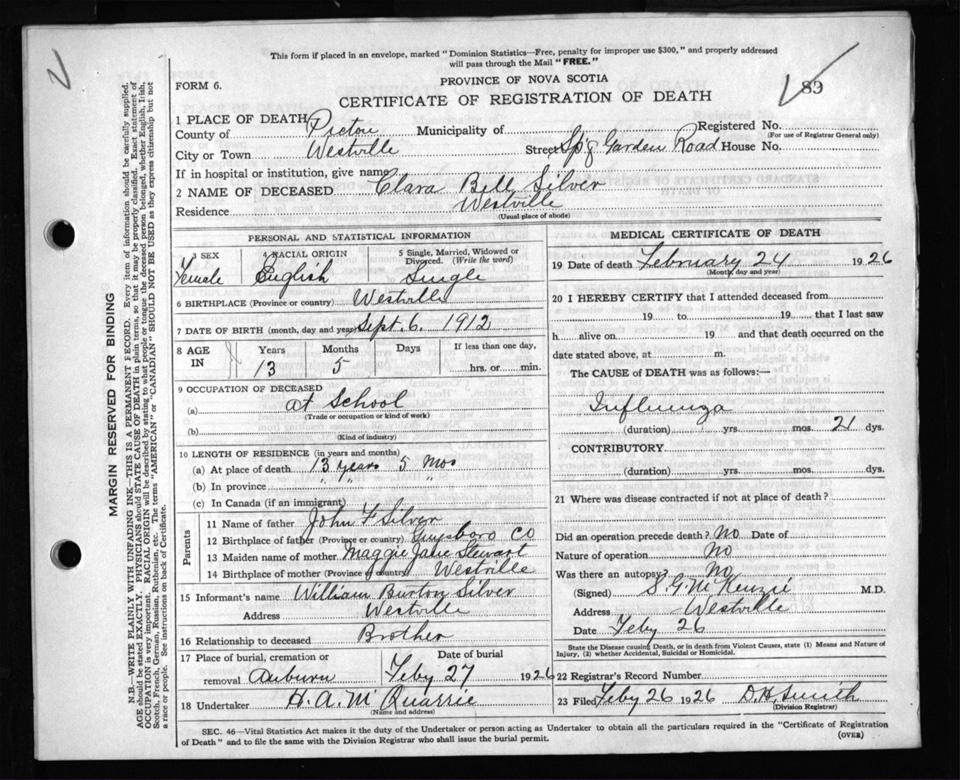 This form if placed in an envelope, marked "Dominion Statistics—Free, penalty for improper use $300," and properly addressed
will pass through the Mail "FREE."
FORM 6.
PROVINCE OF NOVA SCOTIA
89
CERTIFICATE OF REGISTRATION OF DEATH
1 PLACE OF DEATH
County of Pictou Municipality of Registered No.
(For use of Registrar General only)
City or Town Westville Street Sp'g Garden Road House No.
If in hospital or institution, give name
2 NAME OF DECEASED Clara Bell Silver
Residence Westville
(Usual place of abode)
PERSONAL AND STATISTICAL INFORMATION
3 SEX Female
4 RACIAL ORIGIN English
5 Single, Married, Widowed or Divorced. (Write the word) Single
6 BIRTHPLACE (Province or country) Westville
7 DATE OF BIRTH (month, day and year) Sept. 6. 1912
8 AGE IN Years 13 Months 5 Days If less than one day, hrs. or min.
9 OCCUPATION OF DECEASED
(a) at School
(Trade or occupation or kind of work)
(b)
(Kind of industry)
10 LENGTH OF RESIDENCE (in years and months)
(a) At place of death 13 years 5 Mos
(b) In province " " "
(c) In Canada (if an immigrant)
Parents
11 Name of father John F Silver
12 Birthplace of father (Province or country) Guysboro Co
13 Maiden name of mother Maggie Jane Stewart
14 Birthplace of mother (Province or country) Westville
15 Informant's name William Burton Silver
Address Westville
16 Relationship to deceased Brother
17 Place of burial, cremation or removal Auburn
Date of burial Feby 27 1926
18 Undertaker H. A. McQuarrie
(Name and address)
MEDICAL CERTIFICATE OF DEATH
19 Date of death February 24 1926
(Month, day and year)
20 I HEREBY CERTIFY that I attended deceased from
19 to 19 that I last saw
h alive on 19 and that death occurred on the
date stated above, at m.
The CAUSE of DEATH was as follows:—
Influenza
(duration) yrs. mos. 21 dys.
CONTRIBUTORY
(duration) yrs. mos. dys.
21 Where was disease contracted if not at place of death?
Did an operation precede death? No Date of
Nature of operation No
Was there an autopsy? No
(Signed) S. G McKenzie M.D.
Address Westville
Date Feby 26
State the Disease causing Death, or in death from Violent Causes, state (1) Means and Nature of
Injury, (2) whether Accidental, Suicidal or Homicidal.
22 Registrar's Record Number
23 Filed Feby 26 1926 D H Smith
(Division Registrar)
SEC. 46—Vital Statistics Act makes it the duty of the Undertaker or person acting as Undertaker to obtain all the particulars required in the "Certificate of Registration
of Death" and to file the same with the Division Registrar who shall issue the burial permit.
(OVER)
MARGIN RESERVED FOR BINDING
N.B.—WRITE PLAINLY WITH UNFADING INK—THIS IS A PERMANENT RECORD. Every item of information should be carefully supplied.
AGE should be stated EXACTLY. PHYSICIANS should STATE CAUSE OF DEATH in plain terms, so that it may be properly classified. Exact statement of
OCCUPATION is very important. RACIAL ORIGIN will be described by stating to what people or tongue the deceased person belonged, whether English, Irish,
Scotch, French, German, Russian, Ruthenian, etc. The terms "AMERICAN" or "CANADIAN" SHOULD NOT BE USED as they express citizenship but not
a race or people. See instructions on back of Certificate.